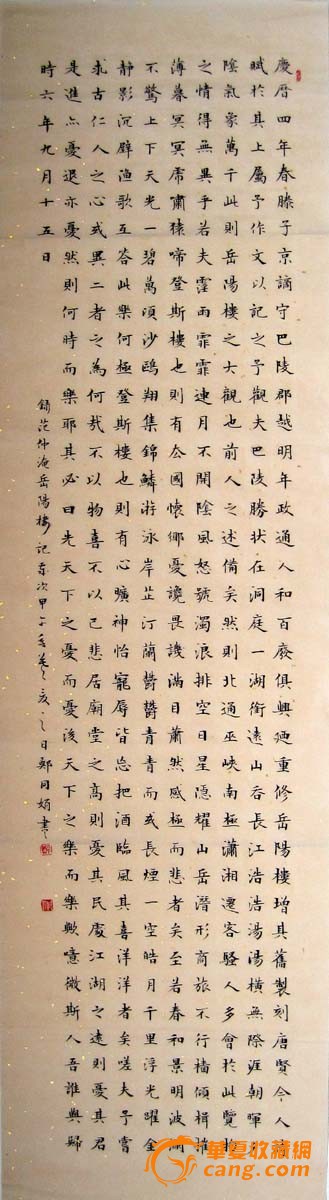 慶曆四年春滕子京謫守巴陵郡越明年政通人和百廢俱興廼重修岳陽樓增其舊製刻唐賢今人詩
賦於其上屬予作文以記之予觀夫巴陵勝狀在洞庭一湖銜遠山吞長江浩浩湯湯橫無際涯朝暉夕
陰氣象萬千此則岳陽樓之大觀也前人之述備矣然則北通巫峽南極瀟湘遷客騷人多會於此覽物
之情得無異乎若夫霪雨霏霏連月不開陰風怒號濁浪排空日星隱耀山岳潛形商旅不行檣傾楫摧
薄暮冥冥虎嘯猿啼登斯樓也則有去國懷鄉憂讒畏譏滿目蕭然感極而悲者矣至若春和景明波瀾
不驚上下天光一碧萬頃沙鷗翔集錦鱗游泳岸芷汀蘭鬱鬱青青而或長煙一空皓月千里浮光曜金
靜影沉壁漁歌互答此樂何極登斯樓也則有心曠神怡寵辱皆忘把酒臨風其喜洋洋者矣嗟夫予嘗
求古仁人之心或異二者之為何哉不以物喜不以己悲居廟堂之高則憂其民處江湖之遠則憂其君
是進亦憂退亦憂然則何時而樂耶其必曰先天下之憂而憂後天下之樂而樂歟噫微斯人吾誰與歸
時六年九月十五日
錄范仲淹岳陽樓記 次甲午 日鄭同 書
華夏收藏網
cang.com